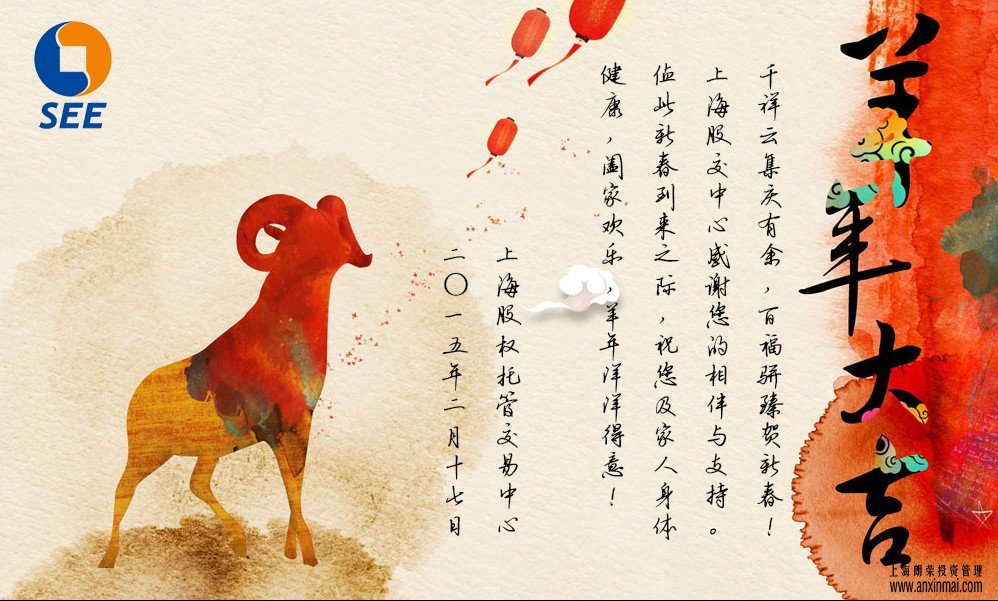 SEE
羊年大吉
千祥云集庆有余，百福骈臻贺新春！
上海股交中心感谢您的相伴与支持。
值此新春到来之际，祝您及家人身体
健康，阖家欢乐，羊年洋洋得意！
上海股权托管交易中心
二〇一五年二月十七日
上海朗荣投资管理
www.anxinmai.com